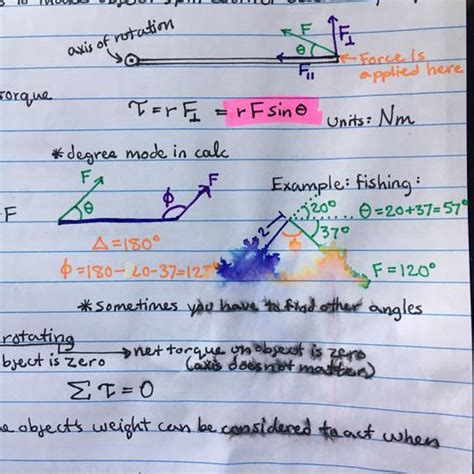 axis of rotation
F
F⊥
θ
F||
Force is
applied here
torque
τ = r F⊥ = r F sin θ
Units: Nm
*degree mode in calc
F
θ
ϕ
F
F
Δ = 180°
ϕ = 180 - 20 - 37 = 12
Example: fishing:
20°
θ = 20 + 37 = 57°
37°
2
ϕ
F = 120°
*sometimes you have to find other angles
rotating
bject is zero → net torque on object is zero
(axis does not matter)
Σ τ = 0
object's weight can be considered to act when